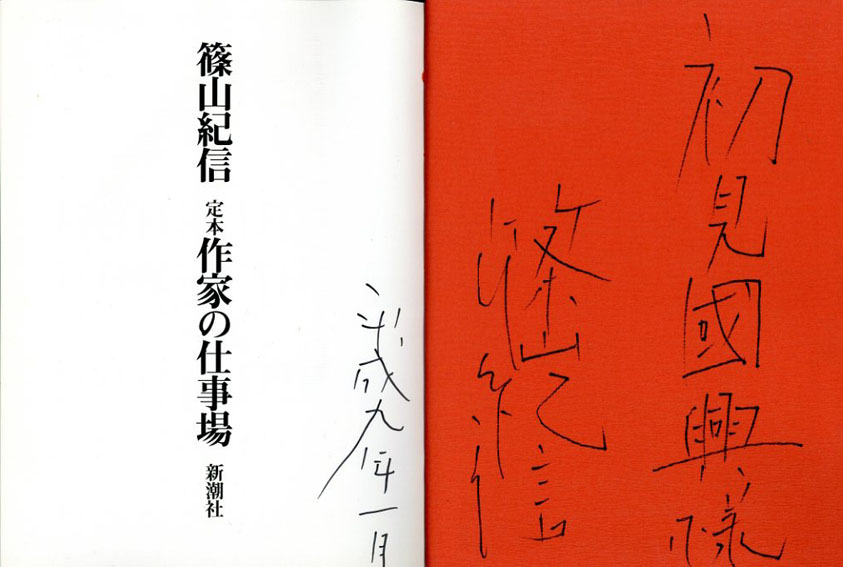 初見國興様
篠山紀信
平成九年一月
篠山紀信
定本 作家の仕事場
新潮社